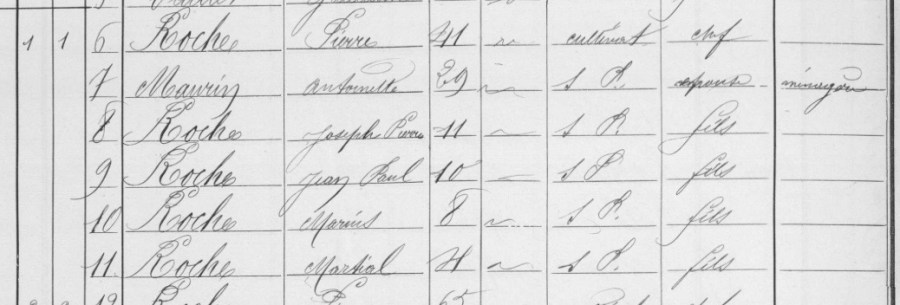 1 1 6 Roche Pierre 41 " cultivat chef
7 Maurin Antoinette 29 " s P. épouse ménagère
8 Roche Joseph Pierre 11 " s P. fils
9 Roche Jean Paul 10 " s P. fils
10 Roche Marius 8 " s P. fils
11 Roche Martial 4 " s P. fils
12 65